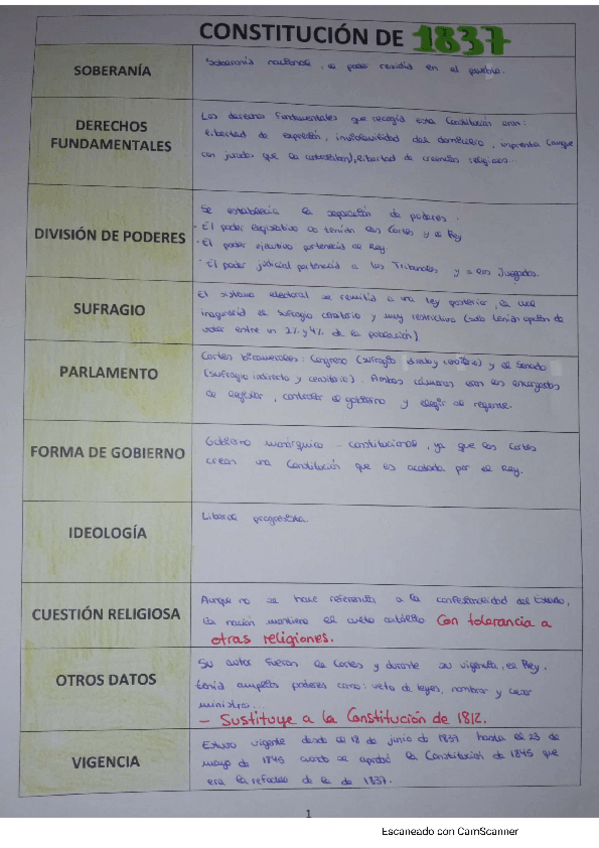 CONSTITUCIÓN DE 1837
SOBERANÍA
Soberanía nacional, el poder residía en el pueblo.
DERECHOS
FUNDAMENTALES
Los derechos fundamentales que recogía esta Constitución eran:
libertad de expresión, inviolabilidad del domicilio, imprenta (aunque
con jurados que la controlaban), libertad de creencias religiosas...
DIVISIÓN DE PODERES
Se establecía la separación de poderes.
· El poder legislativo lo tenían las Cortes y el Rey
· El poder ejecutivo pertenecía al Rey.
· El poder judicial pertenecía a los Tribunales y a los Juzgados.
SUFRAGIO
El sistema electoral se remitía a una ley posterior, la cual
el sufragio censitario y muy restrictivo (solo tenían opción de
votar entre un 2% y 4% de la población)
PARLAMENTO
Cortes bicamerales: Congreso (sufragio directo y censitario) y el Senado
(sufragio indirecto y censitario). Ambas cámaras eran las encargadas
de legislar, controlar el gobierno y elegir al regente.
FORMA DE GOBIERNO
Gobierno monárquico - constitucional, ya que las Cortes
crean una Constitución que es acatada por el Rey.
IDEOLOGÍA
Liberal progresista.
CUESTIÓN RELIGIOSA
Aunque no se hace referencia a la confesionalidad del Estado,
la nación mantiene el culto católico con tolerancia a
otras religiones.
OTROS DATOS
Su autor fueron las Cortes y durante su vigencia, el Rey
tenía amplios poderes como: veto de leyes, nombrar y cesar
ministros...
- Sustituye a la Constitución de 1812.
VIGENCIA
Estuvo vigente desde el 18 de junio de 1837 hasta el 23 de
mayo de 1845 cuando se aprobó la Constitución de 1845 que
era la de la de 1837.
1
Escaneado con CamScanner